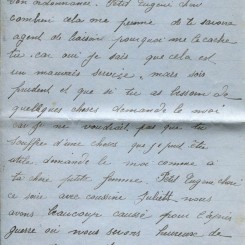 ton ordonnance. Petit Eugène chéri
combien cela me peine de te savoir
agent de liaison pourquoi me le cache
tu. car oui je sais que cela est
un mauvais service, mais sois
prudent et que si tu as besoin de
quelques choses demande le moi
car je ne voudrait pas que tu
souffre d'une choses que je peut être
utile demande le moi comme a
ta chère petite femme. Petit Eugène chéri
ce soir avec cousine Juliette nous
avons beaucoup causé pour l'après
guerre où nous serons heureux de